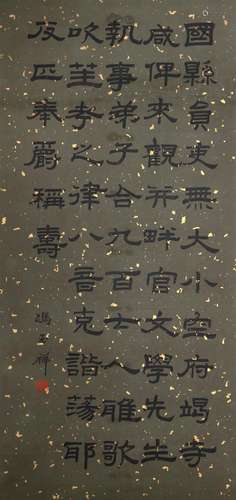 國縣員吏無大小空府竭寺
咸俾來觀并畔官文學先生
執事弟子合九百士人雅歌
吹笙考之律八音克諧蕩邪
反正奉爵稱壽
馮玉祥